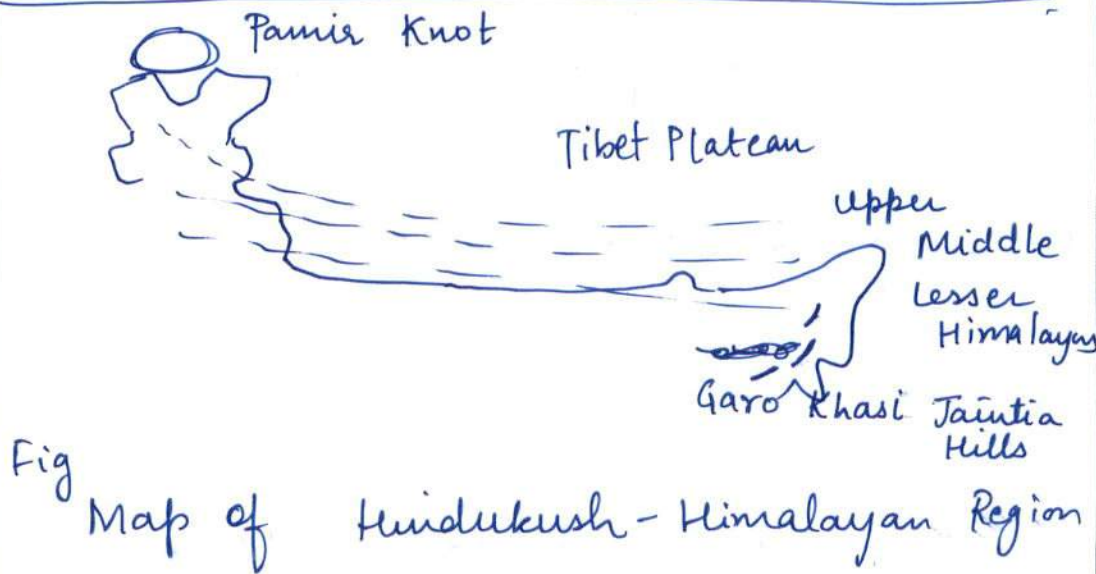 Pamir Knot
Tibet Plateau
Upper
Middle
Lesser
Himalayas
Garo Khasi Jaintia
Hills
Fig
Map of Hindukush - Himalayan Region